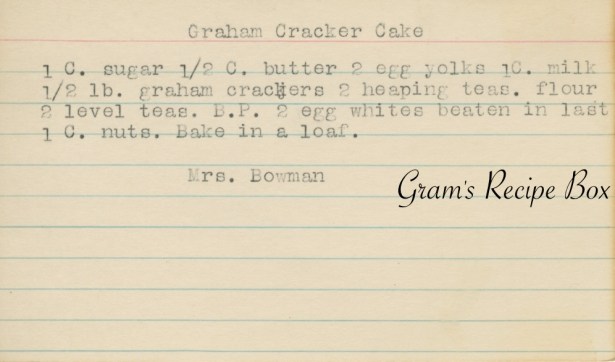 Graham Cracker Cake
1 C. sugar 1/2 C. butter 2 egg yolks 1C. milk
1/2 lb. graham crackers 2 heaping teas. flour
2 level teas. B.P. 2 egg whites beaten in last
1 C. nuts. Bake in a loaf.
Mrs. Bowman
Gram's Recipe Box